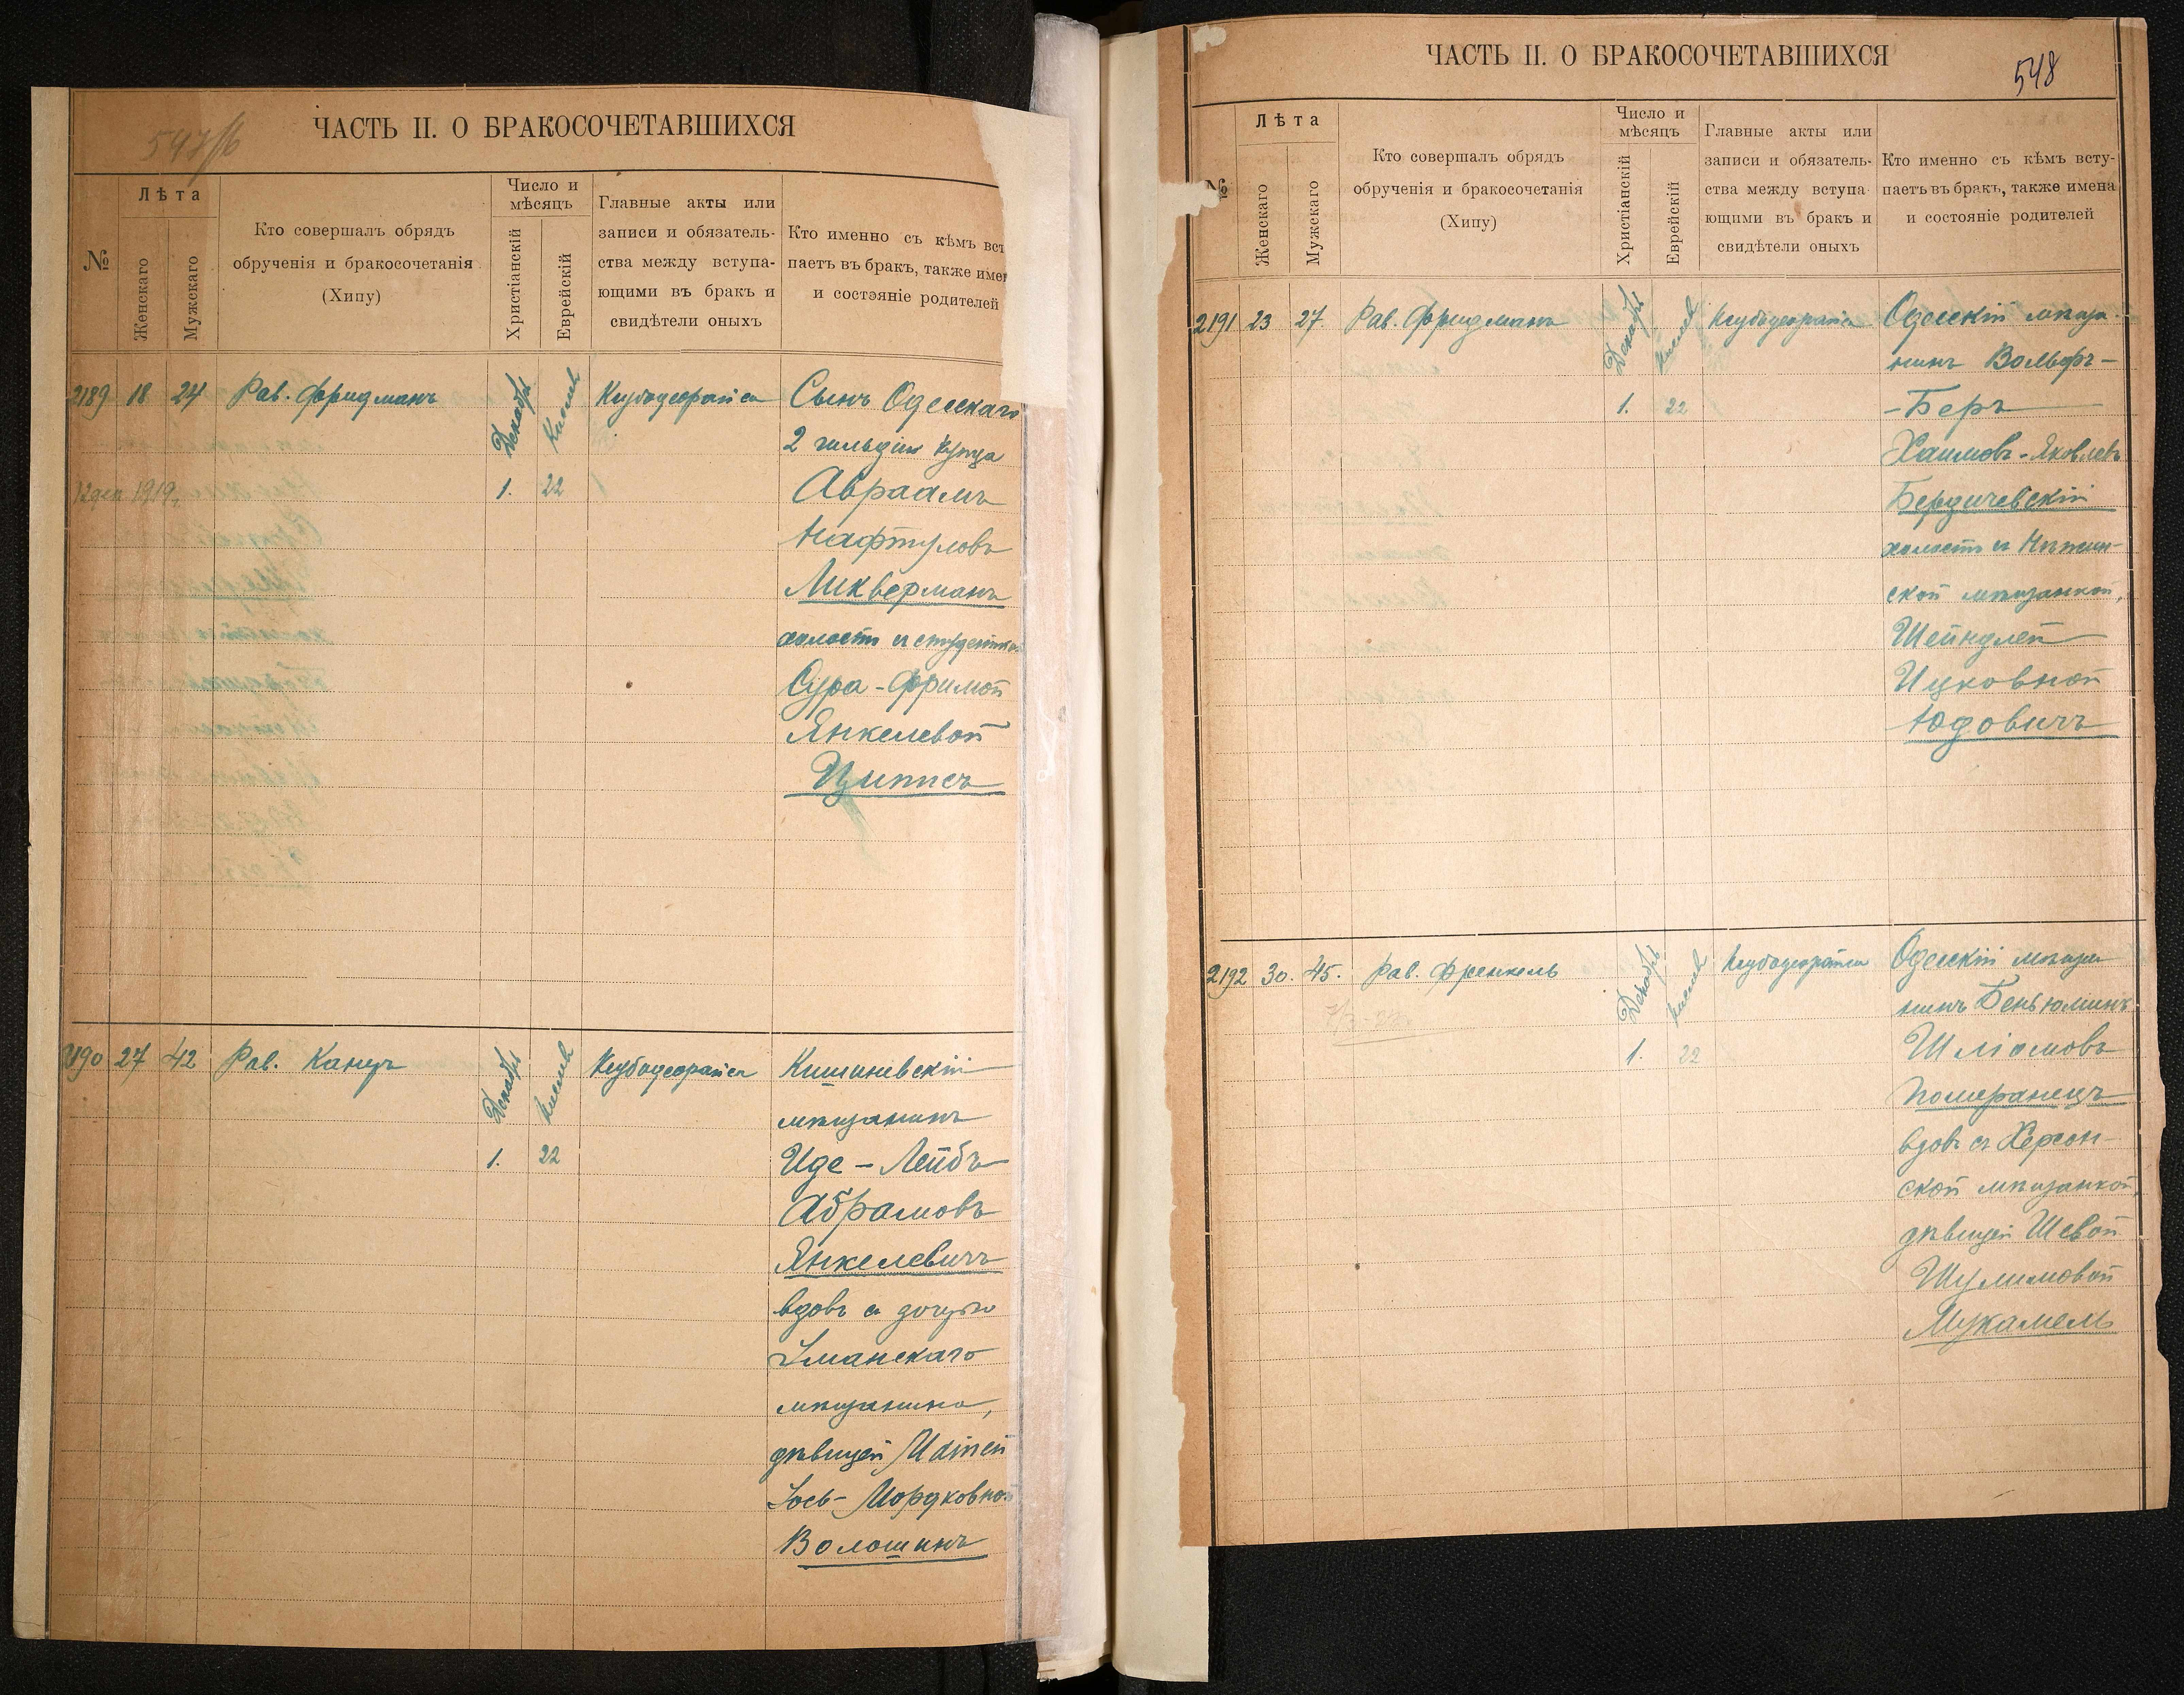 547/б
ЧАСТЬ II. О БРАКОСОЧЕТАВШИХСЯ
№
Лѣта
Женскаго
Мужскаго
Кто совершалъ обрядъ
обрученія и бракосочетанія
(Хипу)
Число и
мѣсяцъ
Христіанскій
Еврейскій
Главные акты или
записи и обязатель-
ства между вступа-
ющими въ бракъ и
свидѣтели оныхъ
Кто именно съ кѣмъ вст
паетъ въ бракъ, также имен
и состояніе родителей
2189 18 24 Рав. Фридманъ
Декабрь
Кислев
1. 22
12 дек 1919
Сынъ Одесскаго
2 гильдіи купца
Авраамъ
Нафтуловъ
Ликверманъ
холостъ съ студентко
Сура-Фримой
Янкелевой
Циписъ
2190 27 42 Рав. Канцъ
Декабрь
Кислев
1. 22
Кишиневскій
мѣщанинъ
Иде-Лейбъ
Абрамовъ
Янкелевичъ
вдовъ съ дочерью
Уманскаго
мѣщанина,
дѣвицей
Іось-Мордковной
Волошинъ
ЧАСТЬ II. О БРАКОСОЧЕТАВШИХСЯ
548
№
Лѣта
Женскаго
Мужскаго
Кто совершалъ обрядъ
обрученія и бракосочетанія
(Хипу)
Число и
мѣсяцъ
Христіанскій
Еврейскій
Главные акты или
записи и обязатель-
ства между вступа-
ющими въ бракъ и
свидѣтели оныхъ
Кто именно съ кѣмъ всту-
паетъ въ бракъ, также имена
и состояніе родителей
2191 23 27 Рав. Фридманъ
Декабрь
Кислев
1. 22
Одесскій мѣща-
нинъ Вольфъ-
-Беръ
Хаимовъ-Яковлевъ
Бердичевскій
холостъ съ Нѣжин-
ской мѣщанкой,
Шейндлей
Ицковной
Юдовичъ
2192 30. 45. Рав. Френкель
Декабрь
Кислев
1. 22
Одесскій мѣща
нинъ Беньюминъ
Шліомовъ
Померанецъ
вдовъ съ Херсон-
ской мѣщанкой,
дѣвицей Шевой
Шулимовой
Мукамель